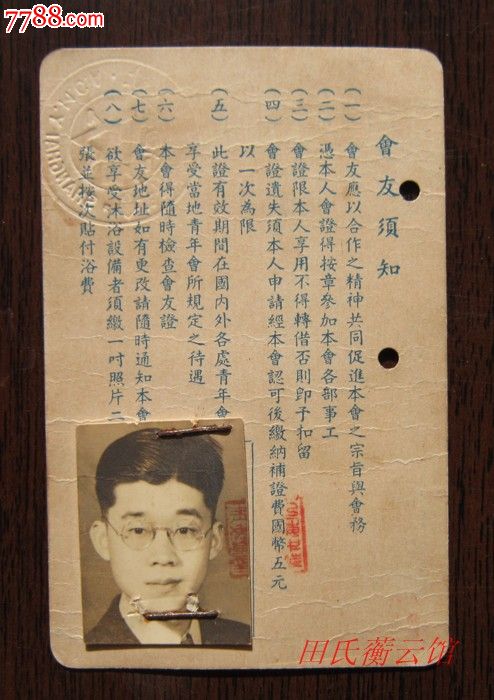 7788.com
會友須知
(一)會友應以合作之精神共同促進本會之宗旨與會務
(二)憑本人會證得按章參加本會各部事工
(三)會證限本人享用不得轉借否則卽予扣留
(四)會證遺失須本人申請經本會認可後繳納補證費國幣五元
以一次為限
(五)此證有效期間在國內外各處青年會
享受當地青年會所規定之待遇
(六)本會得隨時檢查會友證
(七)會友地址如有更改請隨時通知本會
(八)欲享受沐浴設備者須繳一吋照片二
張並按次貼付浴費
田氏蘅云馆